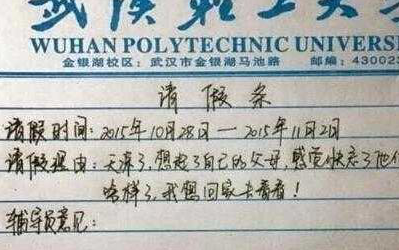 武汉轻工大
WUHAN POLYTECHNIC UNIVERSI
金银湖校区：武汉市金银湖马池路 邮编：43002
请假条
请假时间：2015年10月28日—2015年11月2日
请假理由：天凉了，想起了自己的父母，感觉快忘了他
啥样了，我想回家去看看！
辅导员意见：